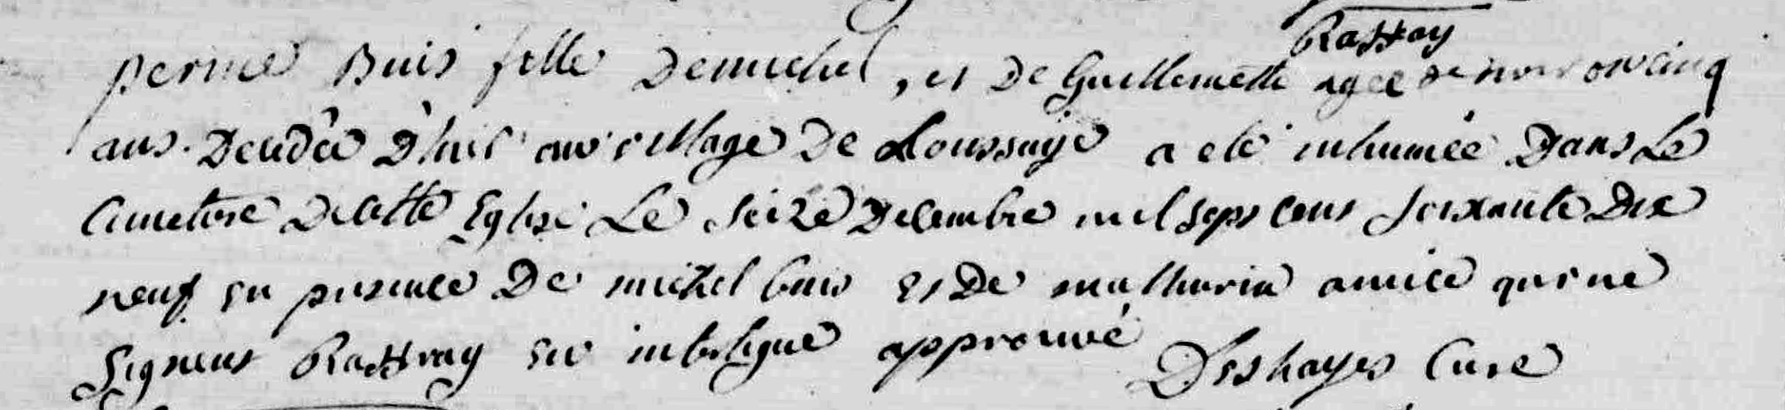 Rattray
perine Buis fille De michel, et De Guillemette agee de
ans. Decedée D'hier au village De Loussaye a eté inhumée Dans Le
Cimetiere De cette Eglise Le seize Decembre mil sept cent soixante Dix
neuf en presence De michel buis et De mathurin amice qui ne
signent Rattray en interligne approuvé Deshayes Curé